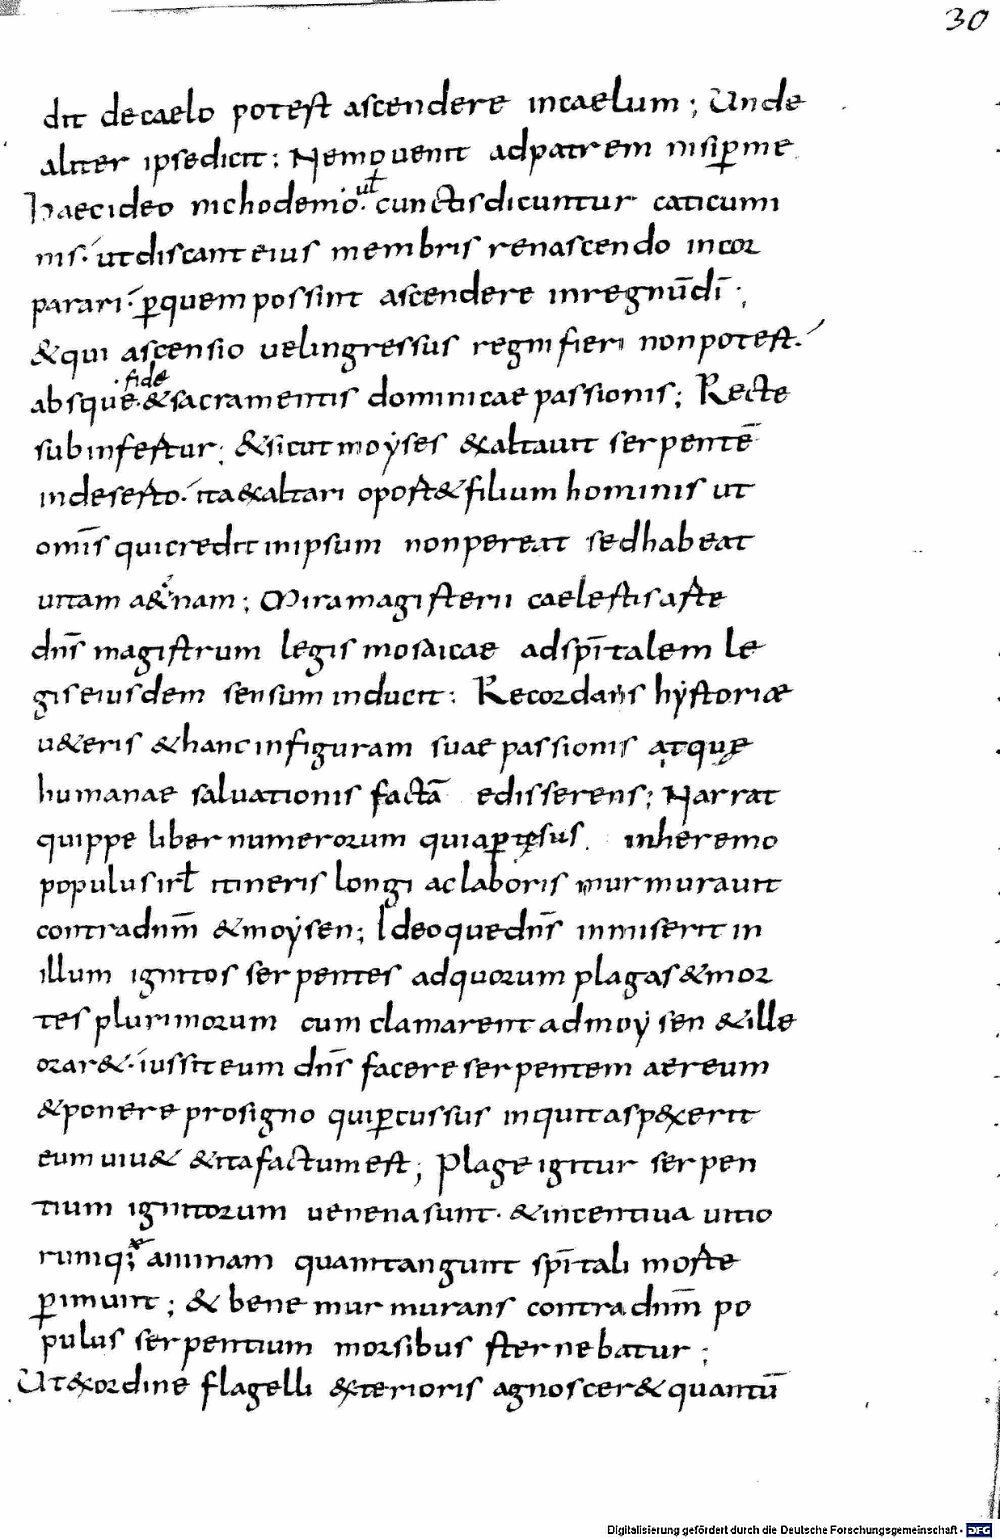 30
dit decaelo potest ascendere incaelum; Unde
aliter ipsedicit; Nemo uenit adpatrem nisip̱me
haecideo nichodemo. ut cunctisdicuntur caticumi
nis. utdiscant eius membris renascendo incor
parari. p̱quem possint ascendere inregnūdī;
&qui ascensio uelingressus regni fieri nonpotest.
absque. fide &sacramentis dominicae passionis; Recte
subinfertur; &sicut moyses exaltauit serpentē
indeserto. ita&altari oport&filium hominis ut
omīs quicredit inipsum nonpereat sedhabeat
uitam a&ernam; Miramagisterii caelestis arte
dn̄s magistrum legis mosaicae adspīitalem le
gis eiusdem sensum inducit; Recordans hystoriae
u&eris &hanc infiguram suae passionis atque
humanae saluationis factā edisserens; Narrat
quippe liber numerorum quiap̱tęsus. inheremo
populus irł itineris longi ac laboris murmurauit
contradnm̄ &moysen; Ideoquedn̄s inmiserit in
illum ignitos serpentes adquorum plagas&mor
tes plurimorum cum clamarent admoysen &ille
orar&. iussit eum dn̄s facere serpentem aereum
&ponere prosigno quip̱cussus inquit asp&xerit
eum uiu& &itafactumest; Plage igitur serpen
tium ignitorum uenena sunt. &incentiua uitio
rumq; ae animam quamtangunt spīitali morte
p̱imunt; & bene murmurans contra dnm̄ po
pulus serpentium morsibus sternebatur;
Ut&xordine flagelli &xterioris agnoscer& quantū
Digitalisierung gefördert durch die Deutsche Forschungsgemeinschaft - DFG